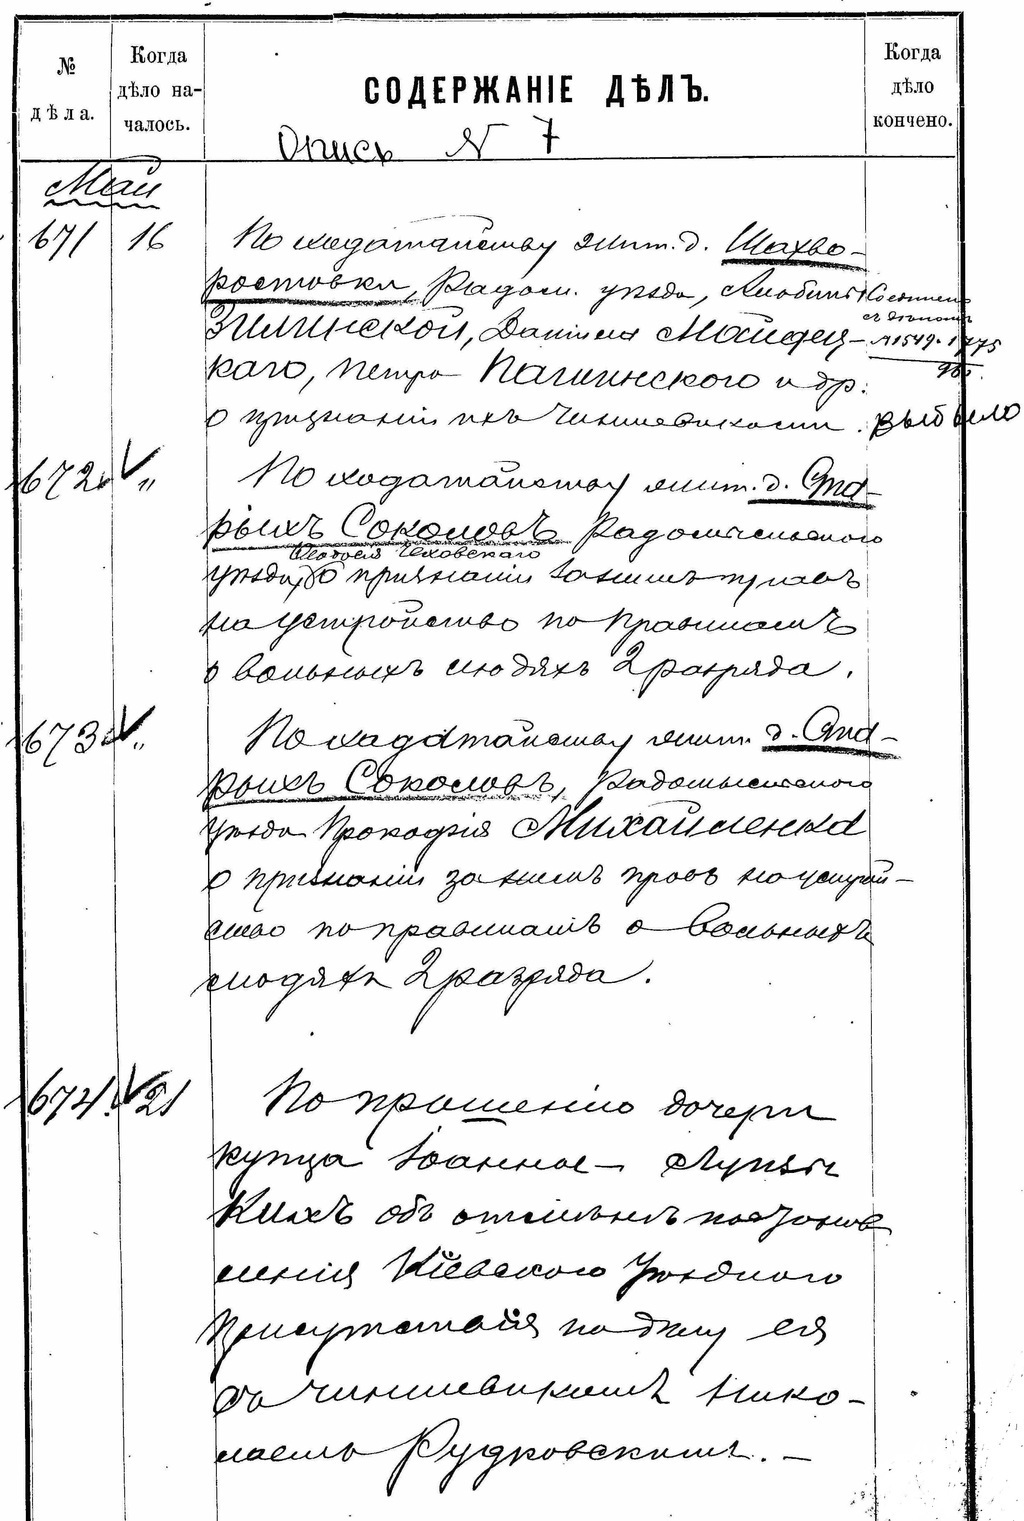 № дѣла.
Когда дѣло на-
чалось.
СОДЕРЖАНІЕ ДѢЛЪ.
Когда дѣло кончено.
Опись N 7
Май
671 16 По ходатайству жит. д. Шахво-
ростовки, Радом. уѣзда,
Зилинской, Даніила
каго, Петра Пашинскаго и др.
о признаніи ихъ чиншевиками.
Соединено
съ дѣломъ
№1549. 1775
выбыло
672 " По ходатайству жит. д. Янд-
рыхъ Соколовъ Радомысльскаго
Чеховскаго
уѣзда, о признаніи за нимъ правъ
на устройство по правиламъ
о вольныхъ людяхъ 2 разряда.
673 " По ходатайству жит. д. Янд-
рыхъ Соколовъ, Радомысльскаго
уѣзда Прокофія Михайленка
о признаніи за нимъ правъ на устрой-
ство по правиламъ о вольныхъ
людяхъ 2 разряда.
674. 21 По прошенію дочери
купца Іоанны
кихъ объ отмѣнѣ постанов
ленія Кіевскаго Уѣзднаго
Присутствія по дѣлу ея
съ чиншевикомъ Нико-
лаемъ Рудковскимъ. —